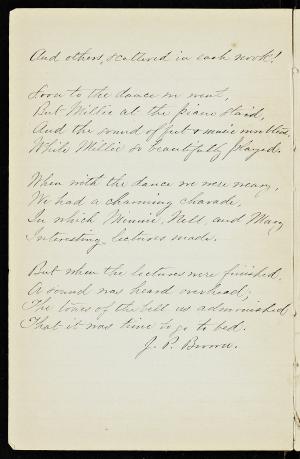 And others, scattered in each nook!
Soon to the dance we went,
But Millie at the piano staid,
And the sound of feet & music
While Millie so beautifully played.
When with the dance we were weary,
We had a charming charade,
In which Minnie, Nell, and Mary
Interesting lectures made.
But when the lectures were finished,
A sound was heard overhead;
The tones of the bell us admonished
That it was time to go to bed.
J. P. Brown.